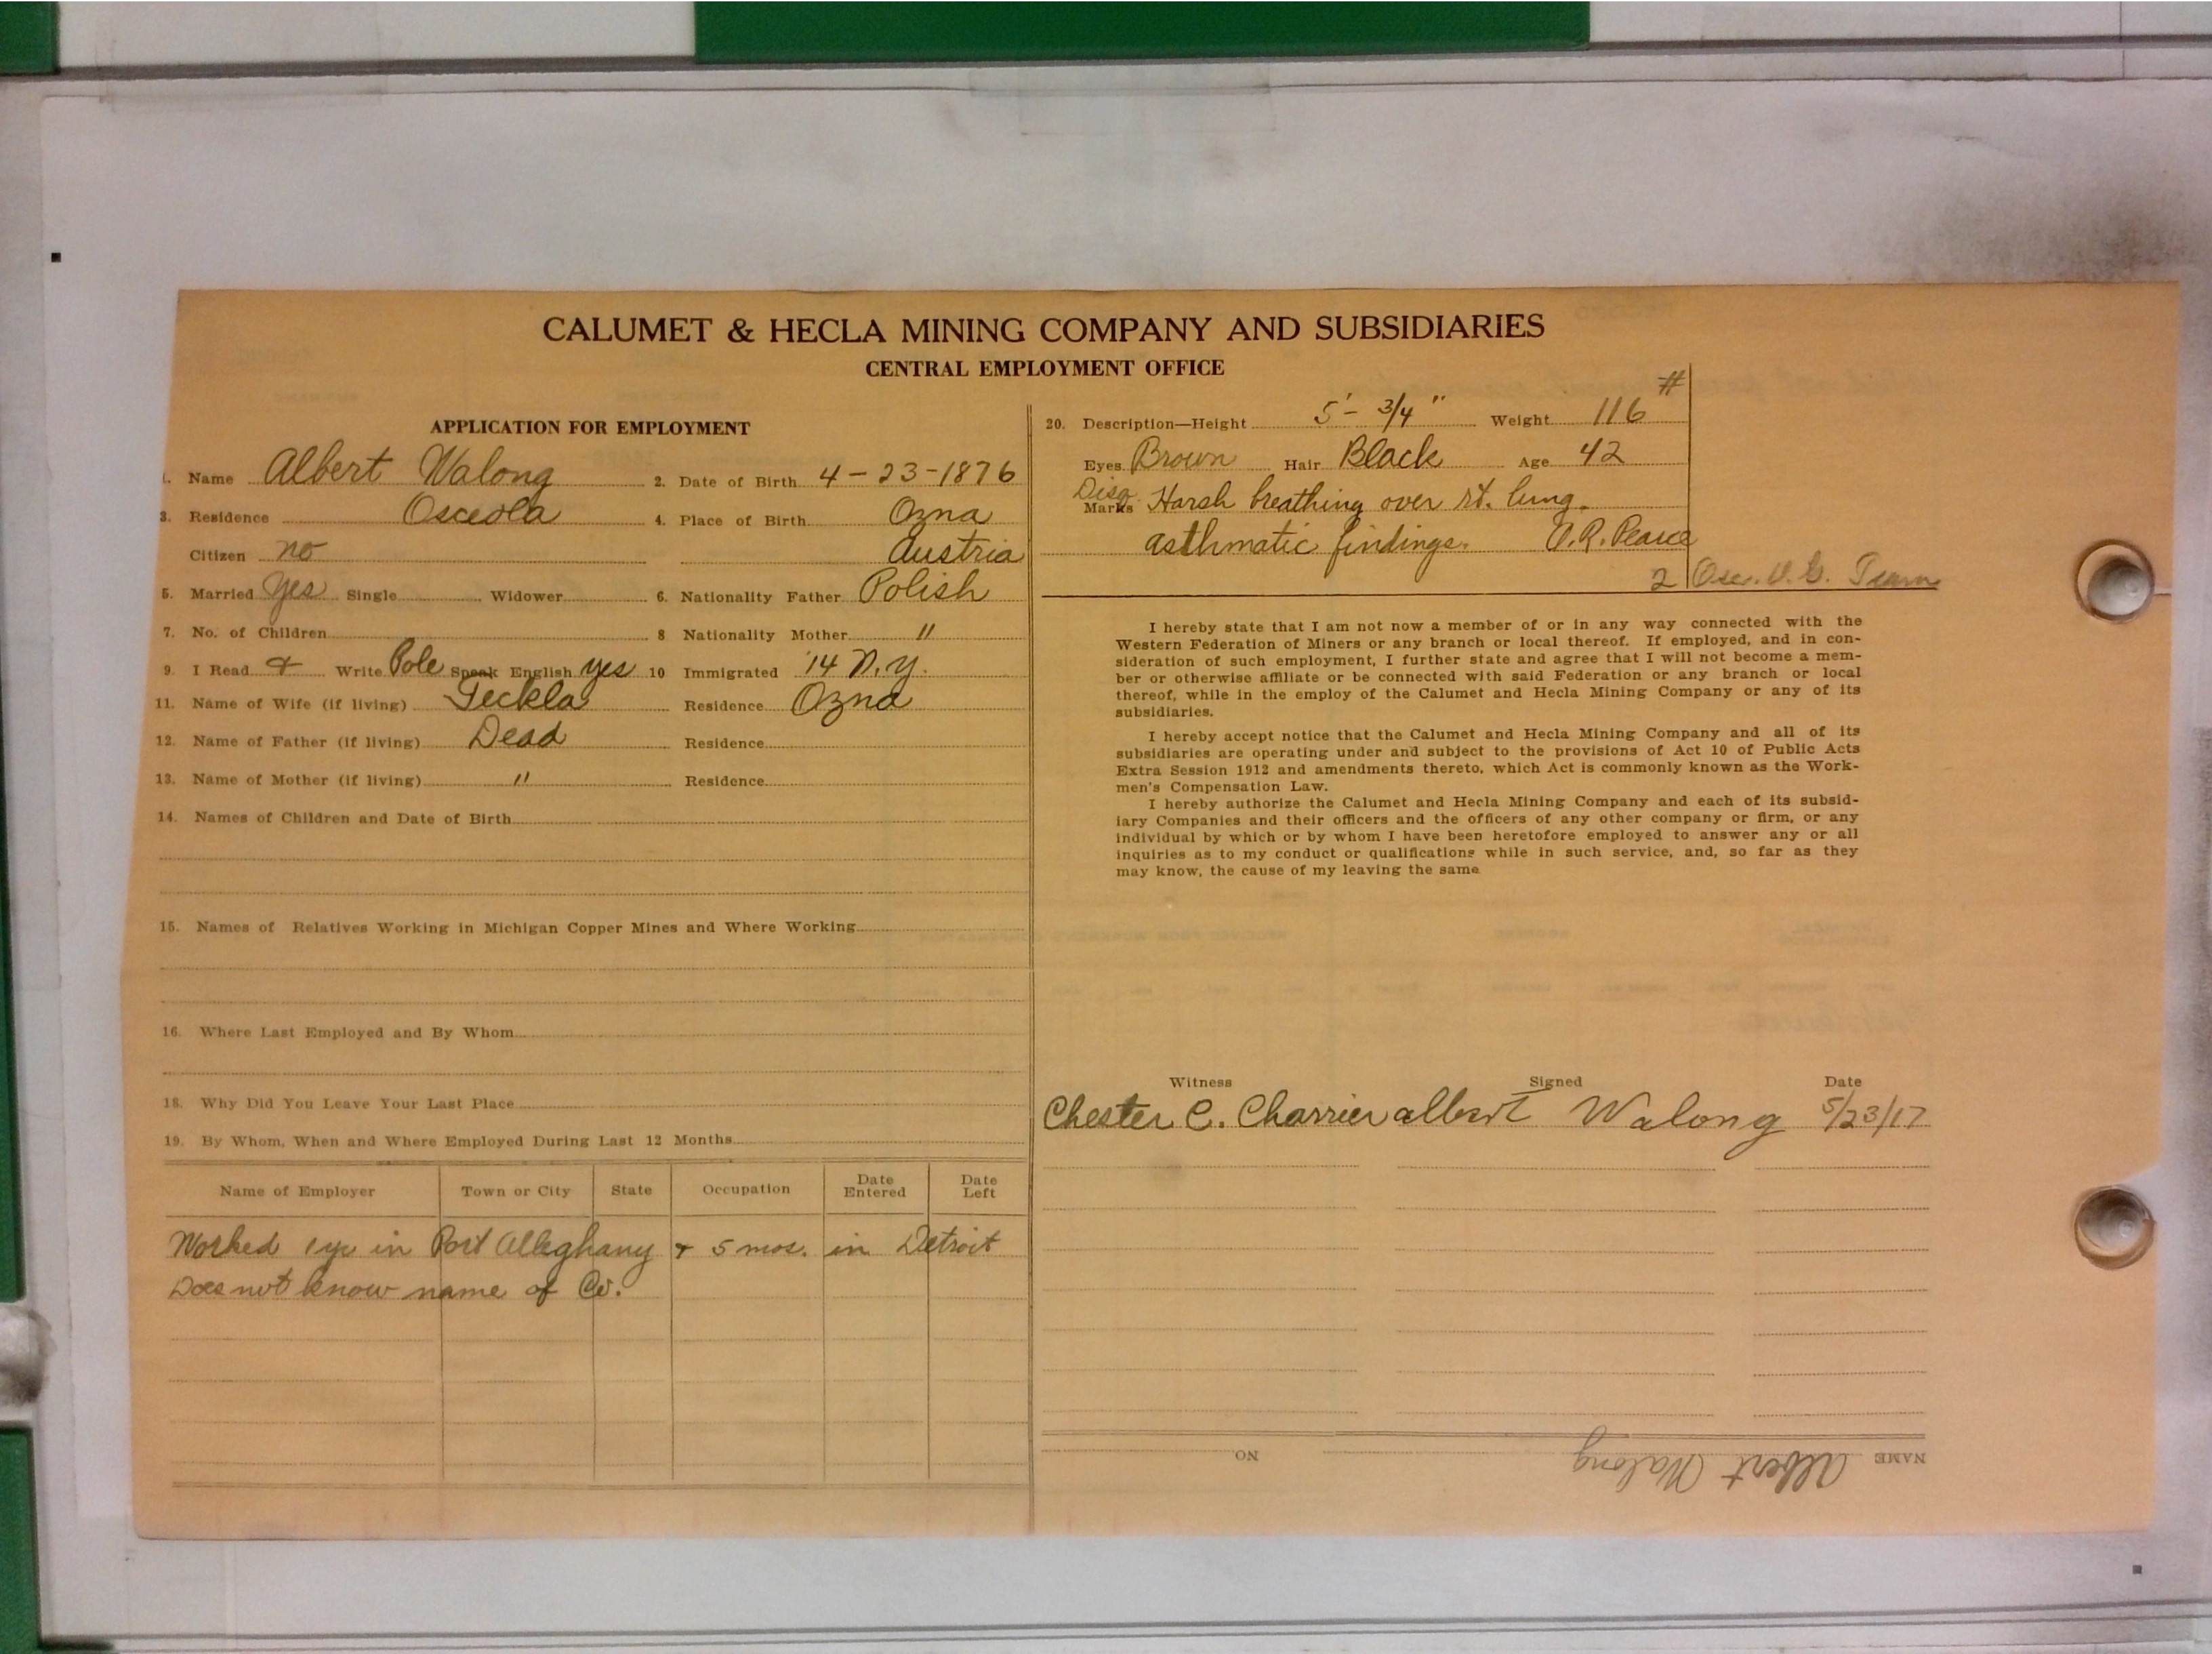 CALUMET & HECLA MINING COMPANY AND SUBSIDIARIES
CENTRAL EMPLOYMENT OFFICE
APPLICATION FOR EMPLOYMENT
1. Name Albert Walong 2. Date of Birth 4-23-1876
3. Residence Osceola 4. Place of Birth Ozna
Citizen no Austria
5. Married Yes Single Widower 6. Nationality Father Polish
7. No. of Children 8 Nationality Mother "
9. I Read & Write Pole Speak English yes 10 Immigrated '14 N.Y.
11. Name of Wife (if living) Teckla Residence Ozna
12. Name of Father (if living) Dead Residence
13. Name of Mother (if living) " Residence
14. Names of Children and Date of Birth
15. Names of Relatives Working in Michigan Copper Mines and Where Working
16. Where Last Employed and By Whom
18. Why Did You Leave Your Last Place
19. By Whom, When and Where Employed During Last 12 Months
Name of Employer Town or City State Occupation Date Entered Date Left
Worked 1 yr in Port Alleghany & 5 mos. in Detroit
Does not know name of Co.
20. Description—Height 5'- 3/4" Weight 116 #
Eyes Brown Hair Black Age 42
Disg.
Marks Harsh breathing over rt. lung.
asthmatic findings. Pearce
2 Osc. Tram
I hereby state that I am not now a member of or in any way connected with the
Western Federation of Miners or any branch or local thereof. If employed, and in con-
sideration of such employment, I further state and agree that I will not become a mem-
ber or otherwise affiliate or be connected with said Federation or any branch or local
thereof, while in the employ of the Calumet and Hecla Mining Company or any of its
subsidiaries.
I hereby accept notice that the Calumet and Hecla Mining Company and all of its
subsidiaries are operating under and subject to the provisions of Act 10 of Public Acts
Extra Session 1912 and amendments thereto, which Act is commonly known as the Work-
men's Compensation Law.
I hereby authorize the Calumet and Hecla Mining Company and each of its subsid-
iary Companies and their officers and the officers of any other company or firm, or any
individual by which or by whom I have been heretofore employed to answer any or all
inquiries as to my conduct or qualifications while in such service, and, so far as they
may know, the cause of my leaving the same
Witness Signed Date
Chester C. Charrier Albert Walong 5/23/17
NAME Albert Walong NO